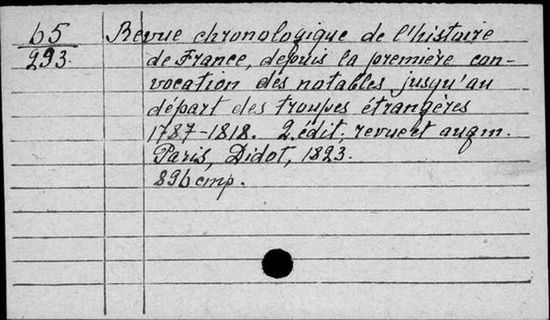 65
293
Revue chronologique de l'histoire
de France, depuis la première con-
vocation des notables jusqu'au
départ des troupes étrangères
1787-1818. 2. édit. revue et augm.
Paris, Didot, 1823.
896 стр.